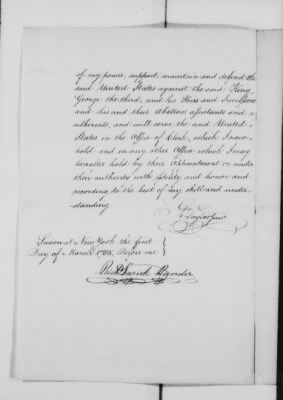 of my power, support, maintain and defend the
said United States against the said King
George the third, and his Heirs and Successors
and his and their abettors assistants and
adherents, and will serve the said United
States in the Office of Clerk, which I now
hold and in any other Office which I may
hereafter hold by their appointment or under
their authority with fidelity and honor and
according to the best of my skill and under-
standing
Geo
Taylor Junr
Sworn at New York the first
Day of March 1785, Before me
Richd Varick Recorder